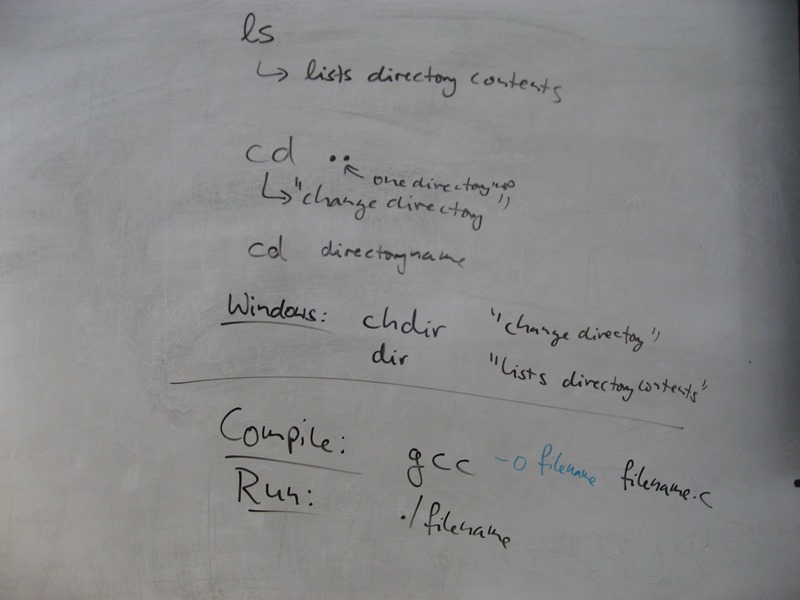 ls
↳ lists directory contents
cd ..
↖ one directory up
↳ "change directory"
cd directoryname
Windows: chdir "change directory"
dir "lists directory contents"
Compile: gcc -o filename filename.c
Run: ./filename